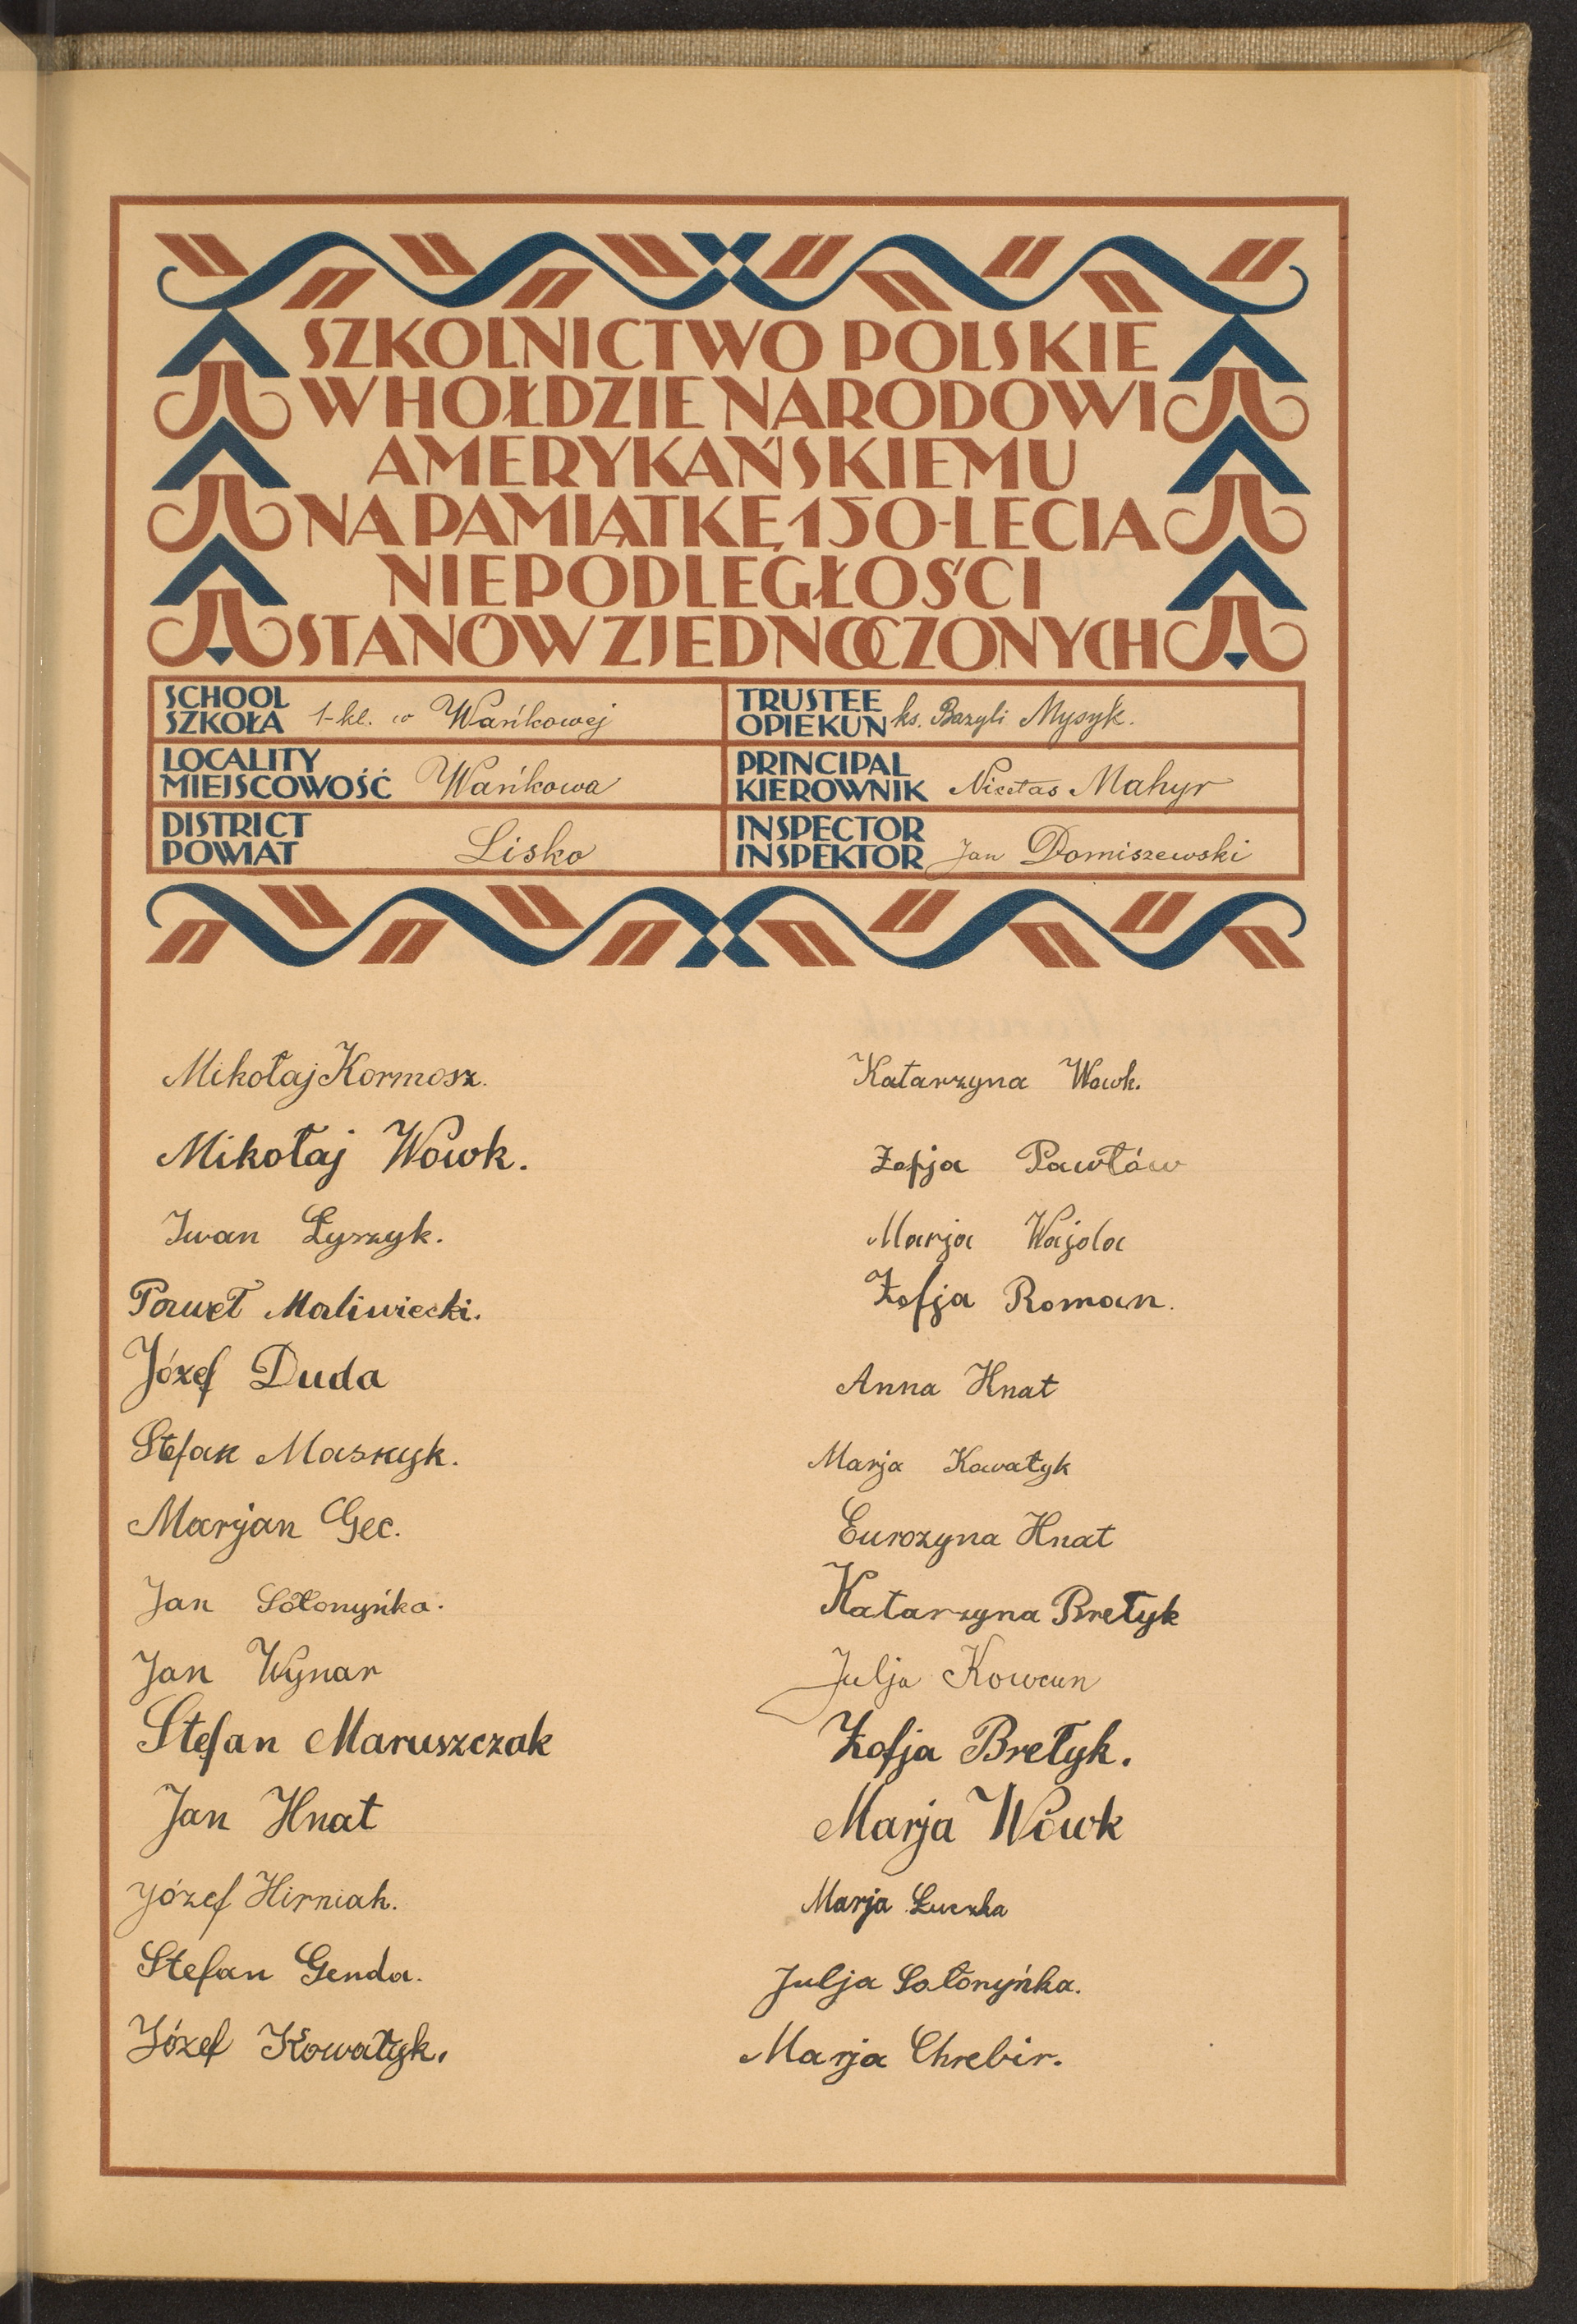 SZKOLNICTWO POLSKIE
W HOŁDZIE NARODOWI
AMERYKAŃSKIEMU
NA PAMIĄTKĘ 150-LECIA
NIEPODLEGŁOŚCI
STANÓW ZJEDNOCZONYCH
SCHOOL
SZKOŁA 1-kl. w Wańkowej
TRUSTEE
OPIEKUN ks. Bazyli Mysyk.
LOCALITY
MIEJSCOWOŚĆ Wańkowa
PRINCIPAL
KIEROWNIK Nicetas Mahyr
DISTRICT
POWIAT Lisko
INSPECTOR
INSPEKTOR Jan Domiszewski
Mikołaj Kormosz.
Mikołaj Wówk.
Iwan Łyszyk.
Paweł Maliwiecki.
Józef Duda
Stefan Maszyk.
Marjan Gec.
Jan Sołonyńka.
Jan Wynar
Stefan Maruszczak
Jan Hnat
Józef Hirniak.
Stefan Genda.
Józef Kowałyk.
Katarzyna Wowk.
Zofja Pawłów
Marja Wajda
Zofja Roman.
Anna Hnat
Marja Kowałyk
Eurozyna Hnat
Katarzyna Brełyk
Julja Kowcun
Zofja Brełyk.
Marja Wówk
Marja Łuczka
Julja Sołonyńka.
Marja Chrebir.